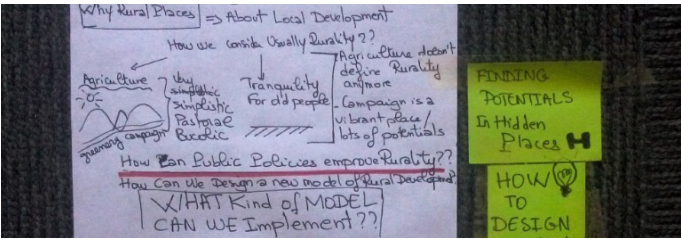 Why Rural Places => About Local Development
How we consider Usually Rurality??
Agriculture
Very
simplistic
Pastoral
Bucolic
greenery campaign
Tranquility
For old people
Agriculture doesn't
define Rurality
anymore
Campaign is a
vibrant place/
lots of potentials
How Can Public Policies emprove Rurality??
How Can We Design a new model of Rural Development?
WHAT Kind of MODEL
CAN WE Implement??
FINDING
POTENTIALS
In Hidden
Places
HOW
TO
DESIGN